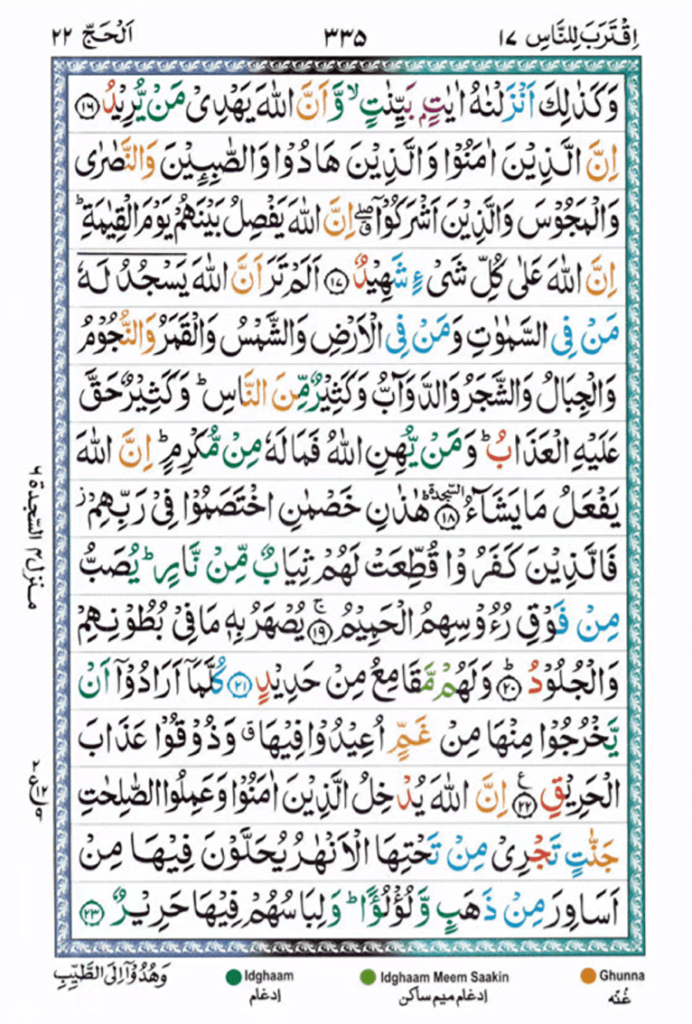 اِقْتَرَبَ لِلنَّاسِ ١٧
٣٣٥
اَلْحَجّ ٢٢
وَكَذٰلِكَ اَنْزَلْنٰهُ اٰيٰتٍۭ بَيِّنٰتٍ ۙ وَّاَنَّ اللّٰهَ يَهْدِىْ مَنْ يُّرِيْدُ ﴿١٦﴾
اِنَّ الَّذِيْنَ اٰمَنُوْا وَالَّذِيْنَ هَادُوْا وَالصّٰبِـِٕيْنَ وَالنَّصٰرٰى
وَالْمَجُوْسَ وَالَّذِيْنَ اَشْرَكُوْۤا ۖ ق اِنَّ اللّٰهَ يَفْصِلُ بَيْنَهُمْ يَوْمَ الْقِيٰمَةِ ؕ
اِنَّ اللّٰهَ عَلٰى كُلِّ شَىْءٍ شَهِيْدٌ ﴿١٧﴾ اَلَمْ تَرَ اَنَّ اللّٰهَ يَسْجُدُ لَهٗ
مَنْ فِى السَّمٰوٰتِ وَمَنْ فِى الْاَرْضِ وَالشَّمْسُ وَالْقَمَرُ وَالنُّجُوْمُ
وَالْجِبَالُ وَالشَّجَرُ وَالدَّوَآبُّ وَكَثِيْرٌ مِّنَ النَّاسِ ؕ وَكَثِيْرٌ حَقَّ
عَلَيْهِ الْعَذَابُ ؕ وَمَنْ يُّهِنِ اللّٰهُ فَمَا لَهٗ مِنْ مُّكْرِمٍ ؕ اِنَّ اللّٰهَ
يَفْعَلُ مَا يَشَآءُ ﴿١٨﴾ السجدة هٰذٰنِ خَصْمٰنِ اخْتَصَمُوْا فِىْ رَبِّهِمْ ز
فَالَّذِيْنَ كَفَرُوْا قُطِّعَتْ لَهُمْ ثِيَابٌ مِّنْ نَّارٍ ؕ يُصَبُّ
مِنْ فَوْقِ رُءُوْسِهِمُ الْحَمِيْمُ ﴿١٩﴾ ۚ يُصْهَرُ بِهٖ مَا فِىْ بُطُوْنِهِمْ
وَالْجُلُوْدُ ﴿٢٠﴾ ؕ وَلَهُمْ مَّقَامِعُ مِنْ حَدِيْدٍ ﴿٢١﴾ كُلَّمَاۤ اَرَادُوْۤا اَنْ
يَّخْرُجُوْا مِنْهَا مِنْ غَمٍّ اُعِيْدُوْا فِيْهَا ق وَذُوْقُوْا عَذَابَ
الْحَرِيْقِ ﴿٢٢﴾ ع اِنَّ اللّٰهَ يُدْخِلُ الَّذِيْنَ اٰمَنُوْا وَعَمِلُوا الصّٰلِحٰتِ
جَنّٰتٍ تَجْرِىْ مِنْ تَحْتِهَا الْاَنْهٰرُ يُحَلَّوْنَ فِيْهَا مِنْ
اَسَاوِرَ مِنْ ذَهَبٍ وَّلُؤْلُؤًا ؕ وَلِبَاسُهُمْ فِيْهَا حَرِيْرٌ ﴿٢٣﴾
منزل ٤ السّجدة ٦
٢ ع ١٢ ٩
وَهُدُوْۤا اِلَى الطَّيِّبِ
Idghaam
ادغام
Idghaam Meem Saakin
ادغام ميم ساكن
Ghunna
غُنّه